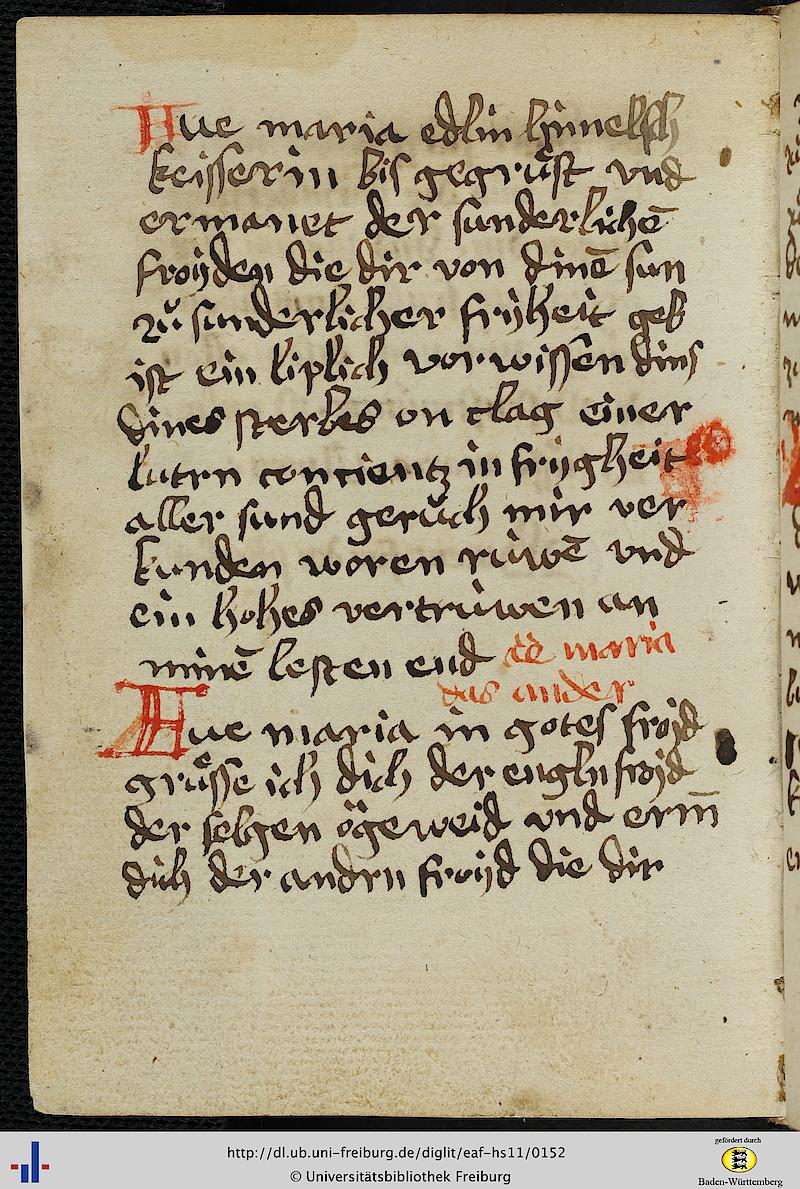 Aue maria edlin himelsch
keisserin bis gegrůst vnd
ermanet der sunderlichē
froyden die dir von dinē sun
zů sunderlicher fryheit geb
ist ein liplich vorwissen dins
dines sterbes on clag einer
lutrn concientz in frygheit
aller sund gerůch mir ver
kunden woren rüwē vnd
ein hohes vertruwen an
minē lesten end maria
das ander
Aue maria in gotes froyd
grůsse ich dich der engln froyd
der selgen ögeweid vnd erm̄
dich der andrn froyd die dir
http://dl.ub.uni-freiburg.de/diglit/eaf-hs11/0152
© Universitätsbibliothek Freiburg
gefördert durch
Baden-Württemberg